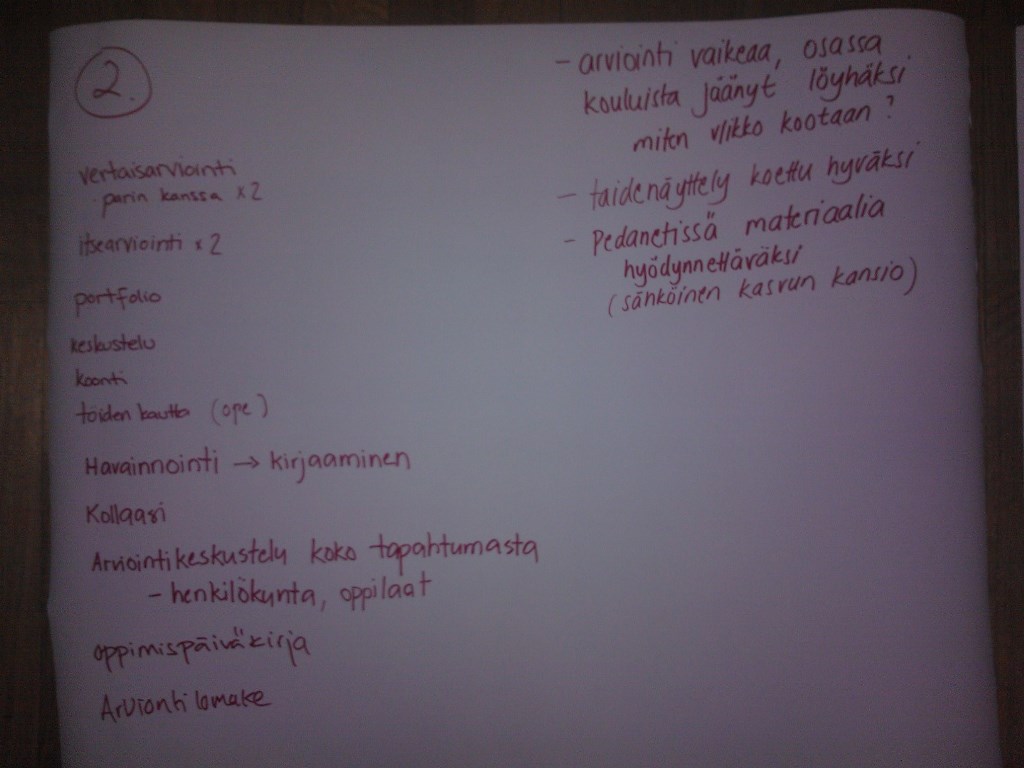 2.
vertaisarviointi
parin kanssa x 2
itsearviointi x 2
portfolio
keskustelu
koonti
töiden kautta (ope)
Havainnointi → kirjaaminen
Kollaasi
Arviointikeskustelu koko tapahtumasta
- henkilökunta, oppilaat
oppimispäiväkirja
Arviontilomake
- arviointi vaikeaa, osassa
kouluista jäänyt löyhäksi
miten viikko kootaan?
- taidenäyttely koettu hyväksi
- Pedanetissä materiaalia
hyödynnettäväksi
(sähköinen kasvun kansio)